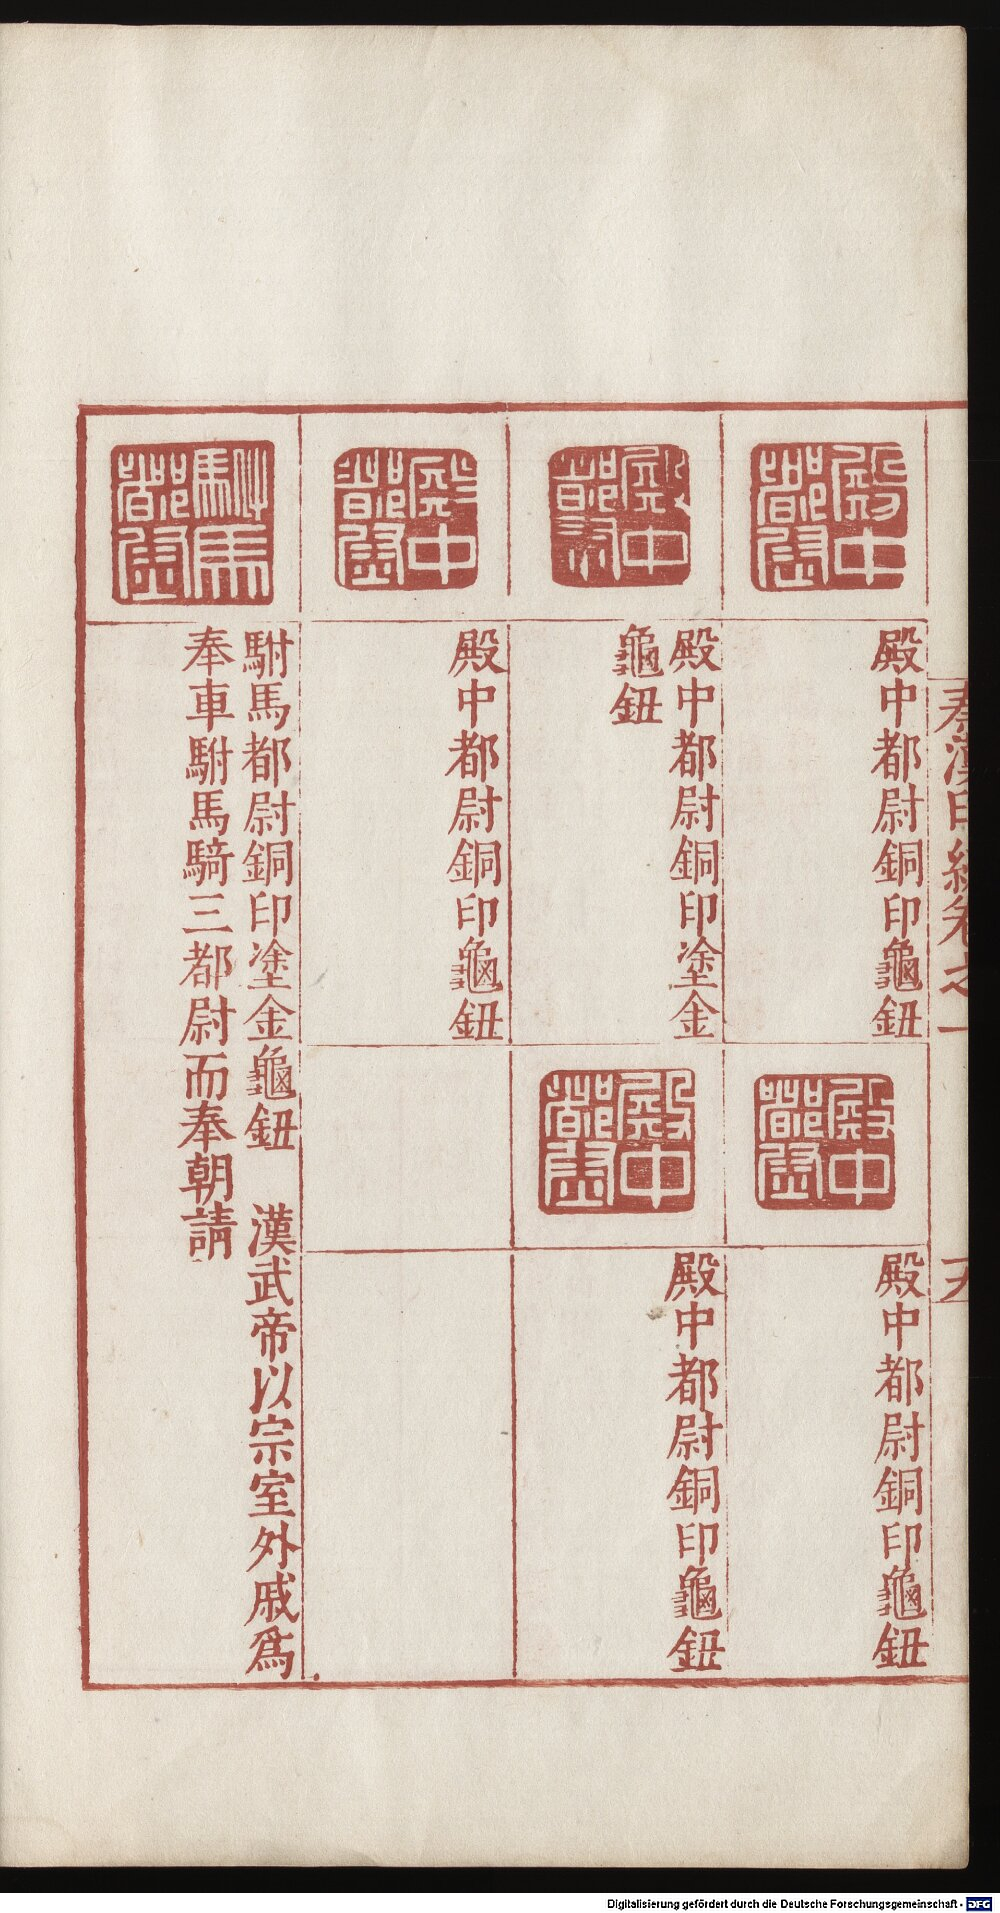 秦漢印統卷之一
殿中都尉
殿中都尉銅印龜鈕
殿中都尉
殿中都尉銅印龜鈕
殿中都尉
殿中都尉銅印塗金
龜鈕
殿中都尉
殿中都尉銅印龜鈕
殿中都尉
殿中都尉銅印龜鈕
駙馬都尉
駙馬都尉銅印塗金龜鈕　漢武帝以宗室外戚爲
奉車駙馬騎三都尉而奉朝請
Digitalisierung gefördert durch die Deutsche Forschungsgemeinschaft - DFG